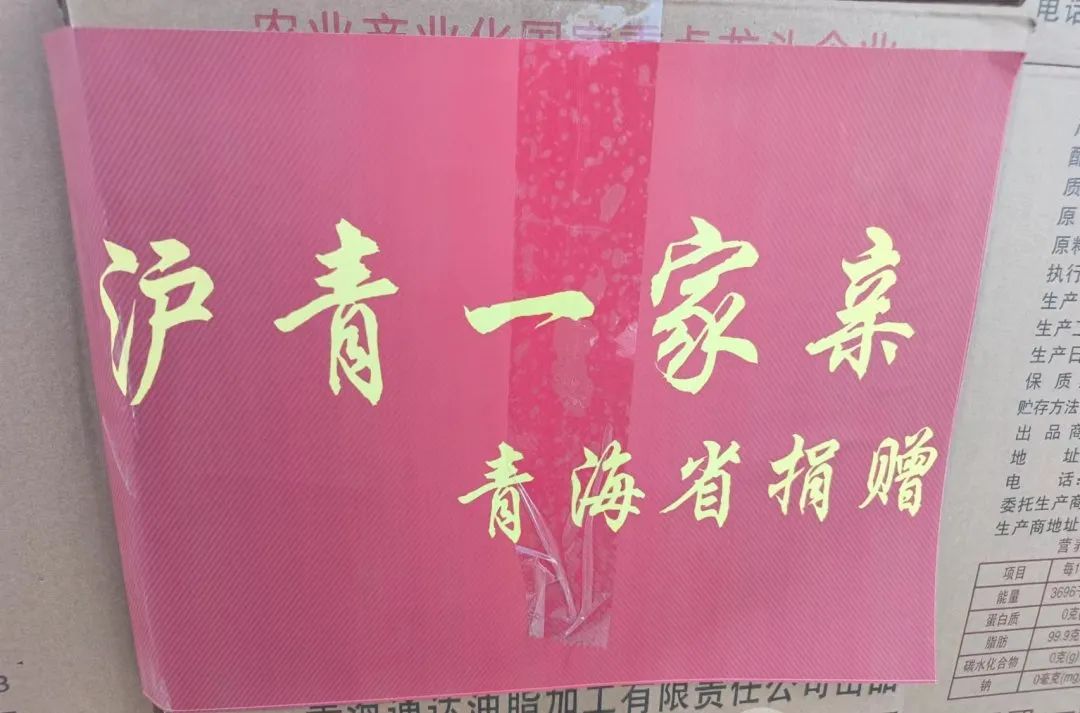 农业产业化国家重点龙头企业
沪青一家亲
青海省捐赠
油脂加工有限责任公司出品
电话
质
原
原料
执行
生产
生产
生产日
保质
贮存方法
出品商
地址
电话:
委托生产商
生产商地址
营养
项目 每1
能量 3696千
蛋白质 0克
脂肪 99.9克
碳水化合物 0克(g)
钠 0毫克(mg